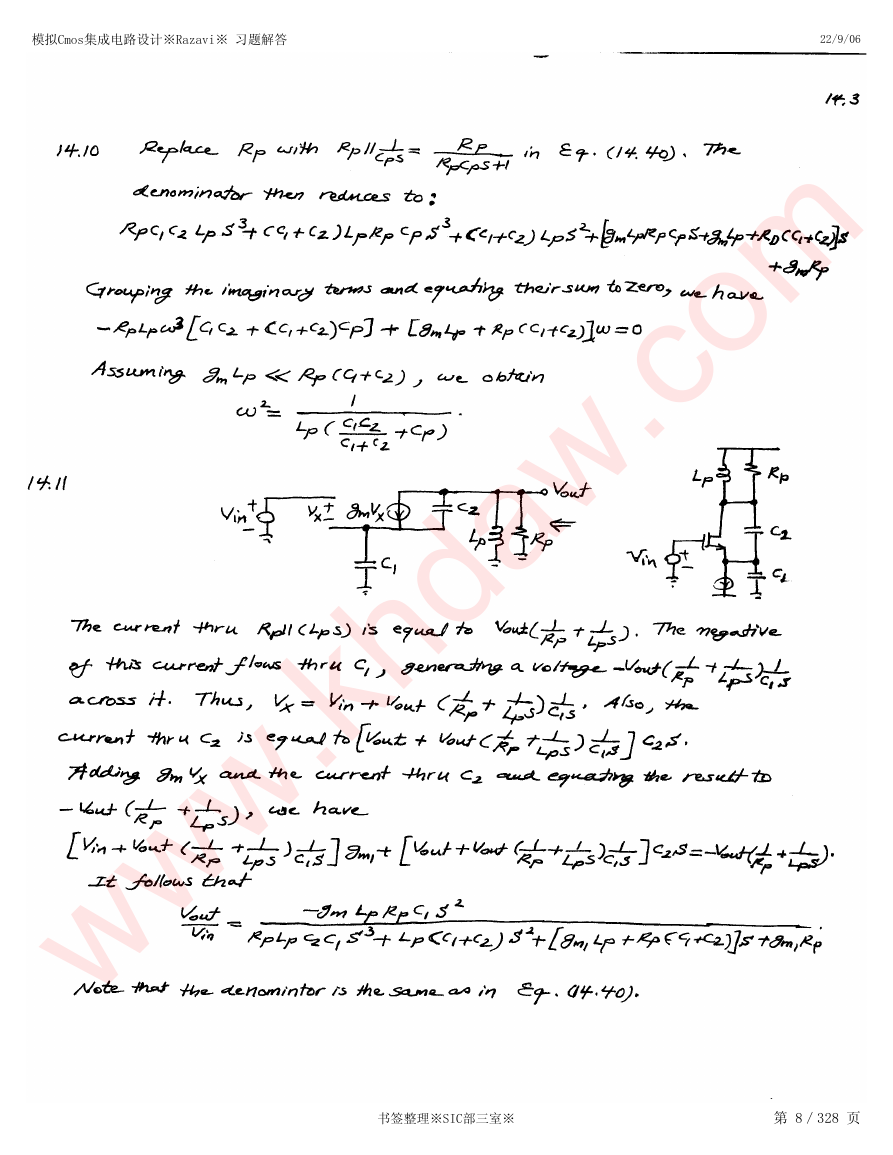 模拟Cmos集成电路设计※Razavi※ 习题解答 22/9/06
14.3
14.10 Replace Rp with Rp||1/(CpS) = Rp/(RpCpS+1) in Eq. (14.40). The
denominator then reduces to:
RpC1C2LpS³+(C1+C2)LpRpCpS³+(C1+C2)LpS²+[gmLpRpCpS+gmLp+RD(C1+C2)]S
+gmRp
Grouping the imaginary terms and equating their sum to zero, we have
-RpLpω³[C1C2+(C1+C2)Cp]+[gmLp+Rp(C1+C2)]ω=0
Assuming gmLp ≪ Rp(C1+C2), we obtain
ω² = 1/(Lp(C1C2/(C1+C2)+Cp)).
14.11
Vin + - Vx + - gmVx C2 Vout Lp Rp ⇐ C1
Lp Rp C2 Vin + - C1
The current thru Rp||(LpS) is equal to Vout(1/Rp+1/(LpS)). The negative
of this current flows thru C1, generating a voltage -Vout(1/Rp+1/(LpS))1/(C1S)
across it. Thus, Vx = Vin+Vout(1/Rp+1/(LpS))1/(C1S). Also, the
current thru C2 is equal to [Vout+Vout(1/Rp+1/(LpS))1/(C1S)]C2S.
Adding gmVx and the current thru C2 and equating the result to
-Vout(1/Rp+1/(LpS)), we have
[Vin+Vout(1/Rp+1/(LpS))1/(C1S)]gm1+[Vout+Vout(1/Rp+1/(LpS))1/(C1S)]C2S=-Vout(1/Rp+1/(LpS)).
It follows that
Vout/Vin = -gmLpRpC1S²/(RpLpC2C1S³+Lp(C1+C2)S²+[gm1Lp+Rp(C1+C2)]S+gm1Rp).
Note that the denomintor is the same as in Eq. (14.40).
www.khdaw.com
书签整理※SIC部三室※ 第 8 / 328 页